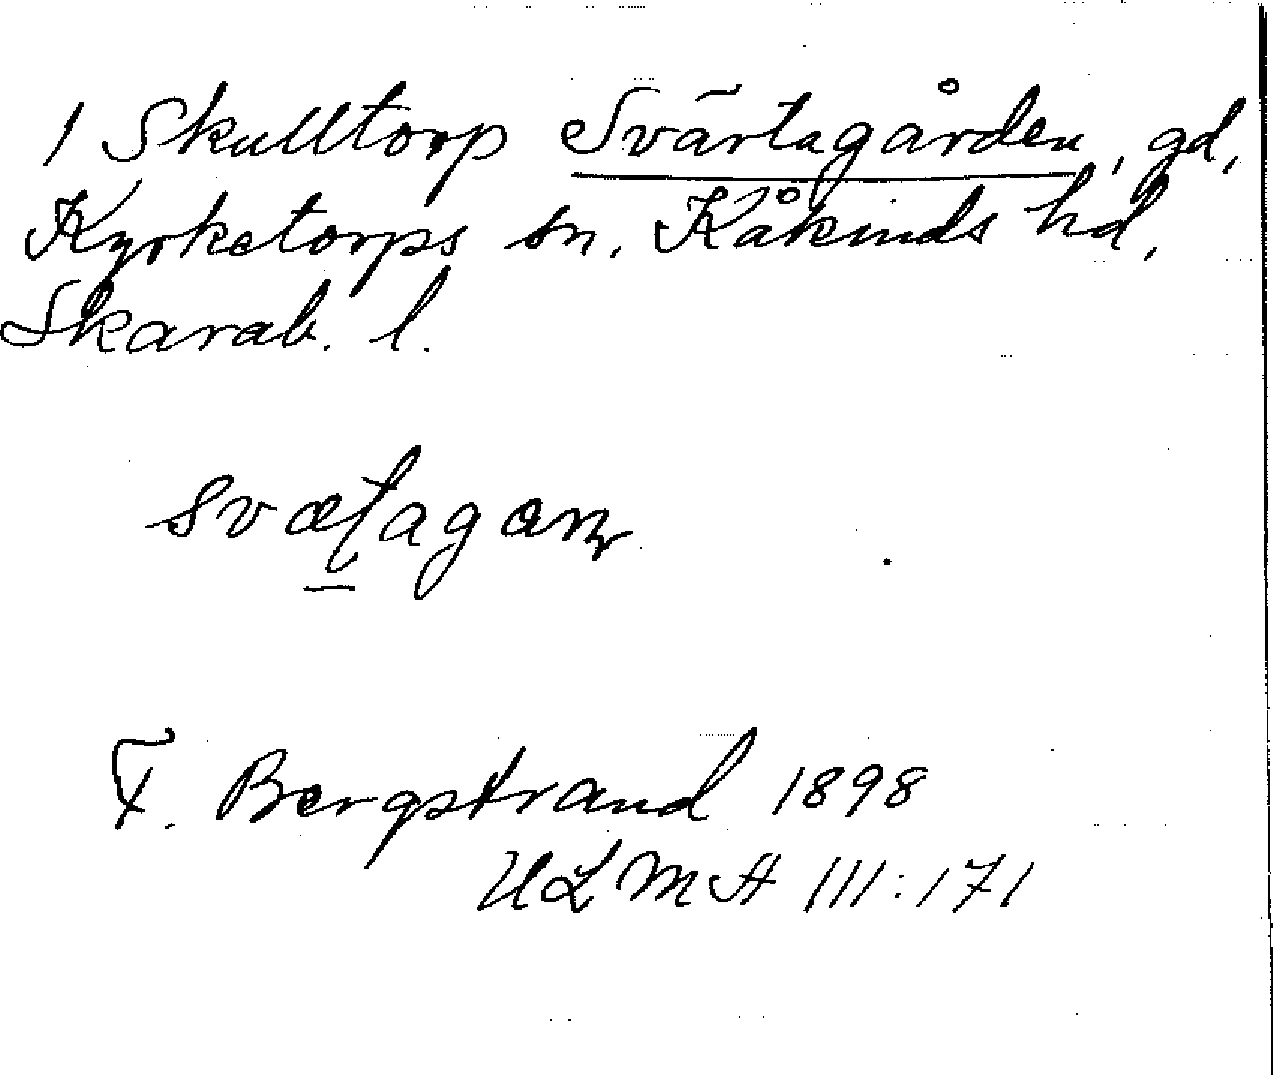 1 Skulltorp Svärtagården, gd,
Kyrketorps sn. Kåkinds hd,
Skarab. l.
F. Bergstrand 1898
ULMA III:171